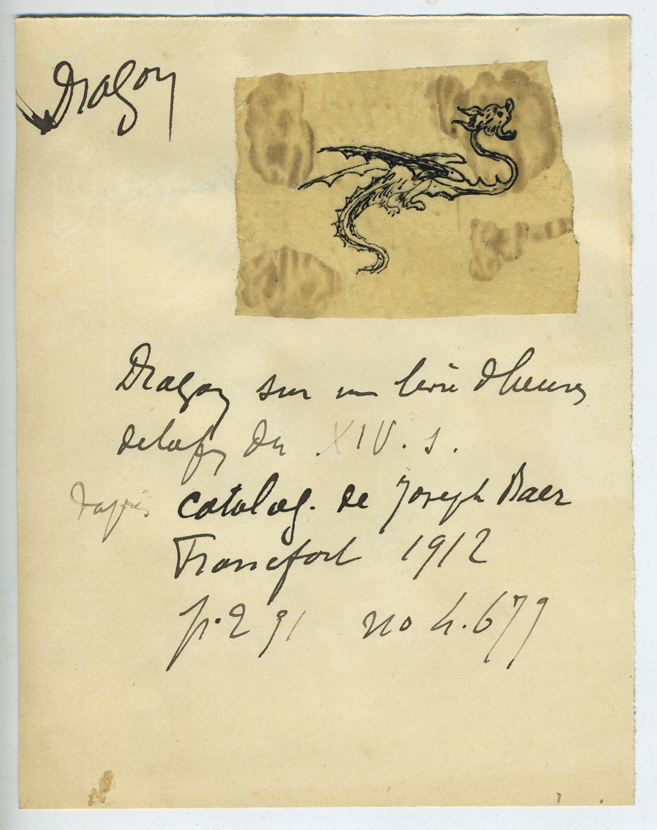 Dragon
Dragon sur un livre d'heures
de la fin du XIV. s.
d'après catalog. de Joseph Baer
Francfort 1912
p. 291 no 4.679